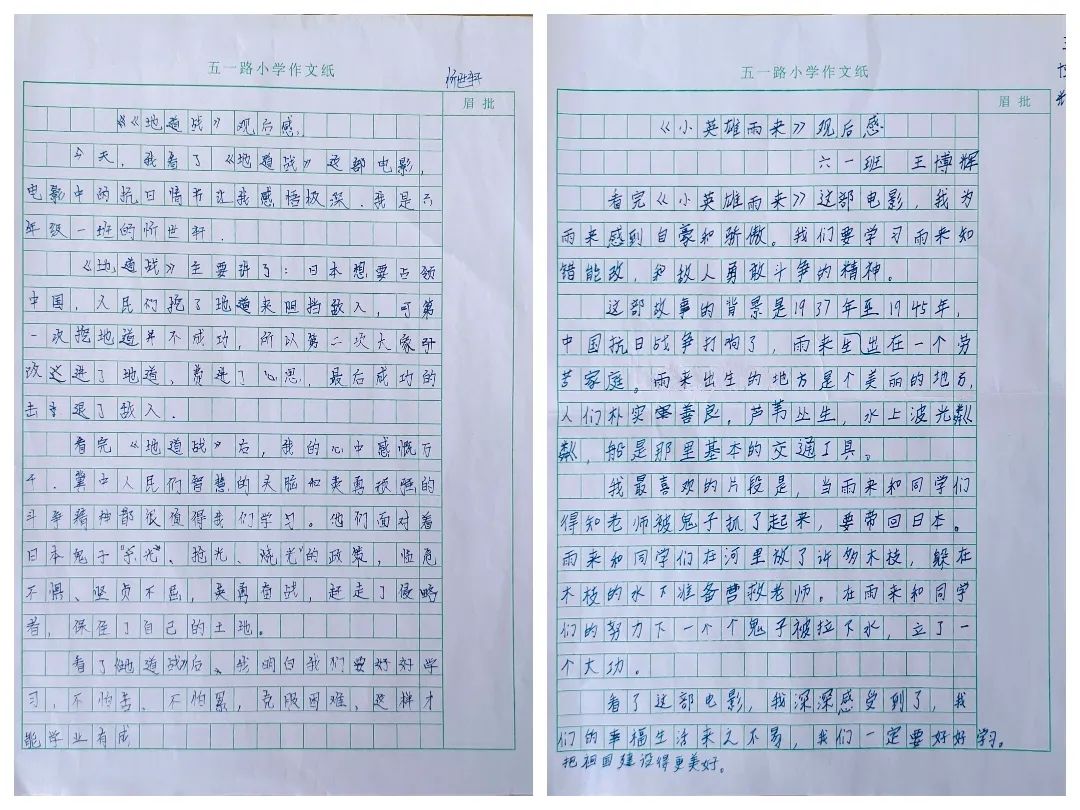 五一路小学作文纸
眉批
《地道战》观后感
今天，我看了《地道战》这部电影，
电影中的抗日情节让我感悟极深．我是六
年级一班的忻世轩．
《地道战》主要讲了：日本想要占领
中国，人民们挖了地道来阻挡敌人，可第
一次挖地道并不成功，所以第二次大家
改进了地道，费尽了心思，最后成功的
击退了敌人．
看完《地道战》后，我的心中感慨万
千．冀中人民们智慧的头脑和英勇顽强的
斗争精神都很值得我们学习。他们面对着
日本鬼子"杀光、抢光、烧光"的政策，临危
不惧、坚贞不屈，英勇奋战，赶走了侵略
者，保住了自己的土地。
看了《地道战》后、我明白我们要好好学
习，不怕苦、不怕累，克服困难、这样才
能学业有成
五一路小学作文纸
眉批
《小英雄雨来》观后感
六一班 王博辉
看完《小英雄雨来》这部电影，我为
雨来感到自豪和骄傲。我们要学习雨来知
错能改，和敌人勇敢斗争的精神。
这部故事的背景是1937年至1945年，
中国抗日战争打响了，雨来生出在一个劳
苦家庭。雨来出生的地方是个美丽的地方，
人们朴实善良，芦苇丛生，水上波光粼
粼，船是那里基本的交通工具。
我最喜欢的片段是，当雨来和同学们
得知老师被鬼子抓了起来，要带回日本。
雨来和同学们在河里放了许多木枝，躲在
木枝的水下准备营救老师。在雨来和同学
们的努力下一个个鬼子被拉下水，立了一
个大功。
看了这部电影，我深深感受到了，我
们的幸福生活来之不易，我们一定要好好学习。
把祖国建设得更美好。